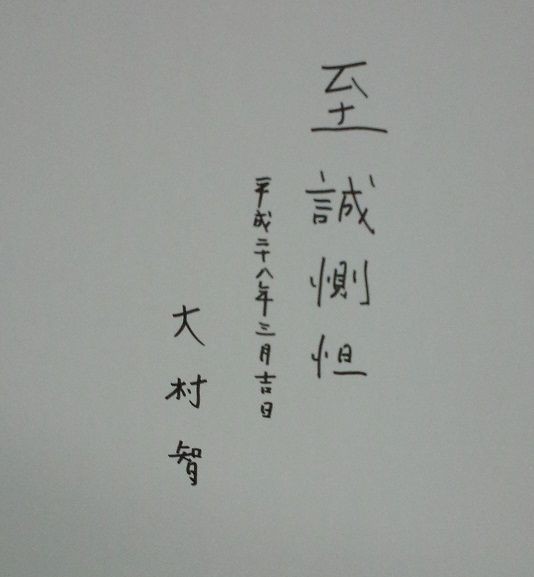 至誠惻怛
平成二十八年三月吉日
大村智